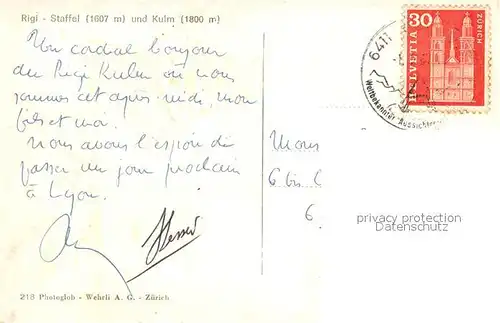 Rigi - Staffel (1607 m) und Kulm (1800 m)
Un cordial bonjour
du Rigi Kulm où nous
sommes cet après-midi, mon
fils et moi.
Nous avons l'espoir de
passer un jour prochain
à Lyon.
218 Photoglob - Wehrli A. G. - Zürich
30
ZÜRICH
HELVETIA
6411
Weltbekannter Aussichts
Mons
6 bis
6
privacy protection
Datenschutz